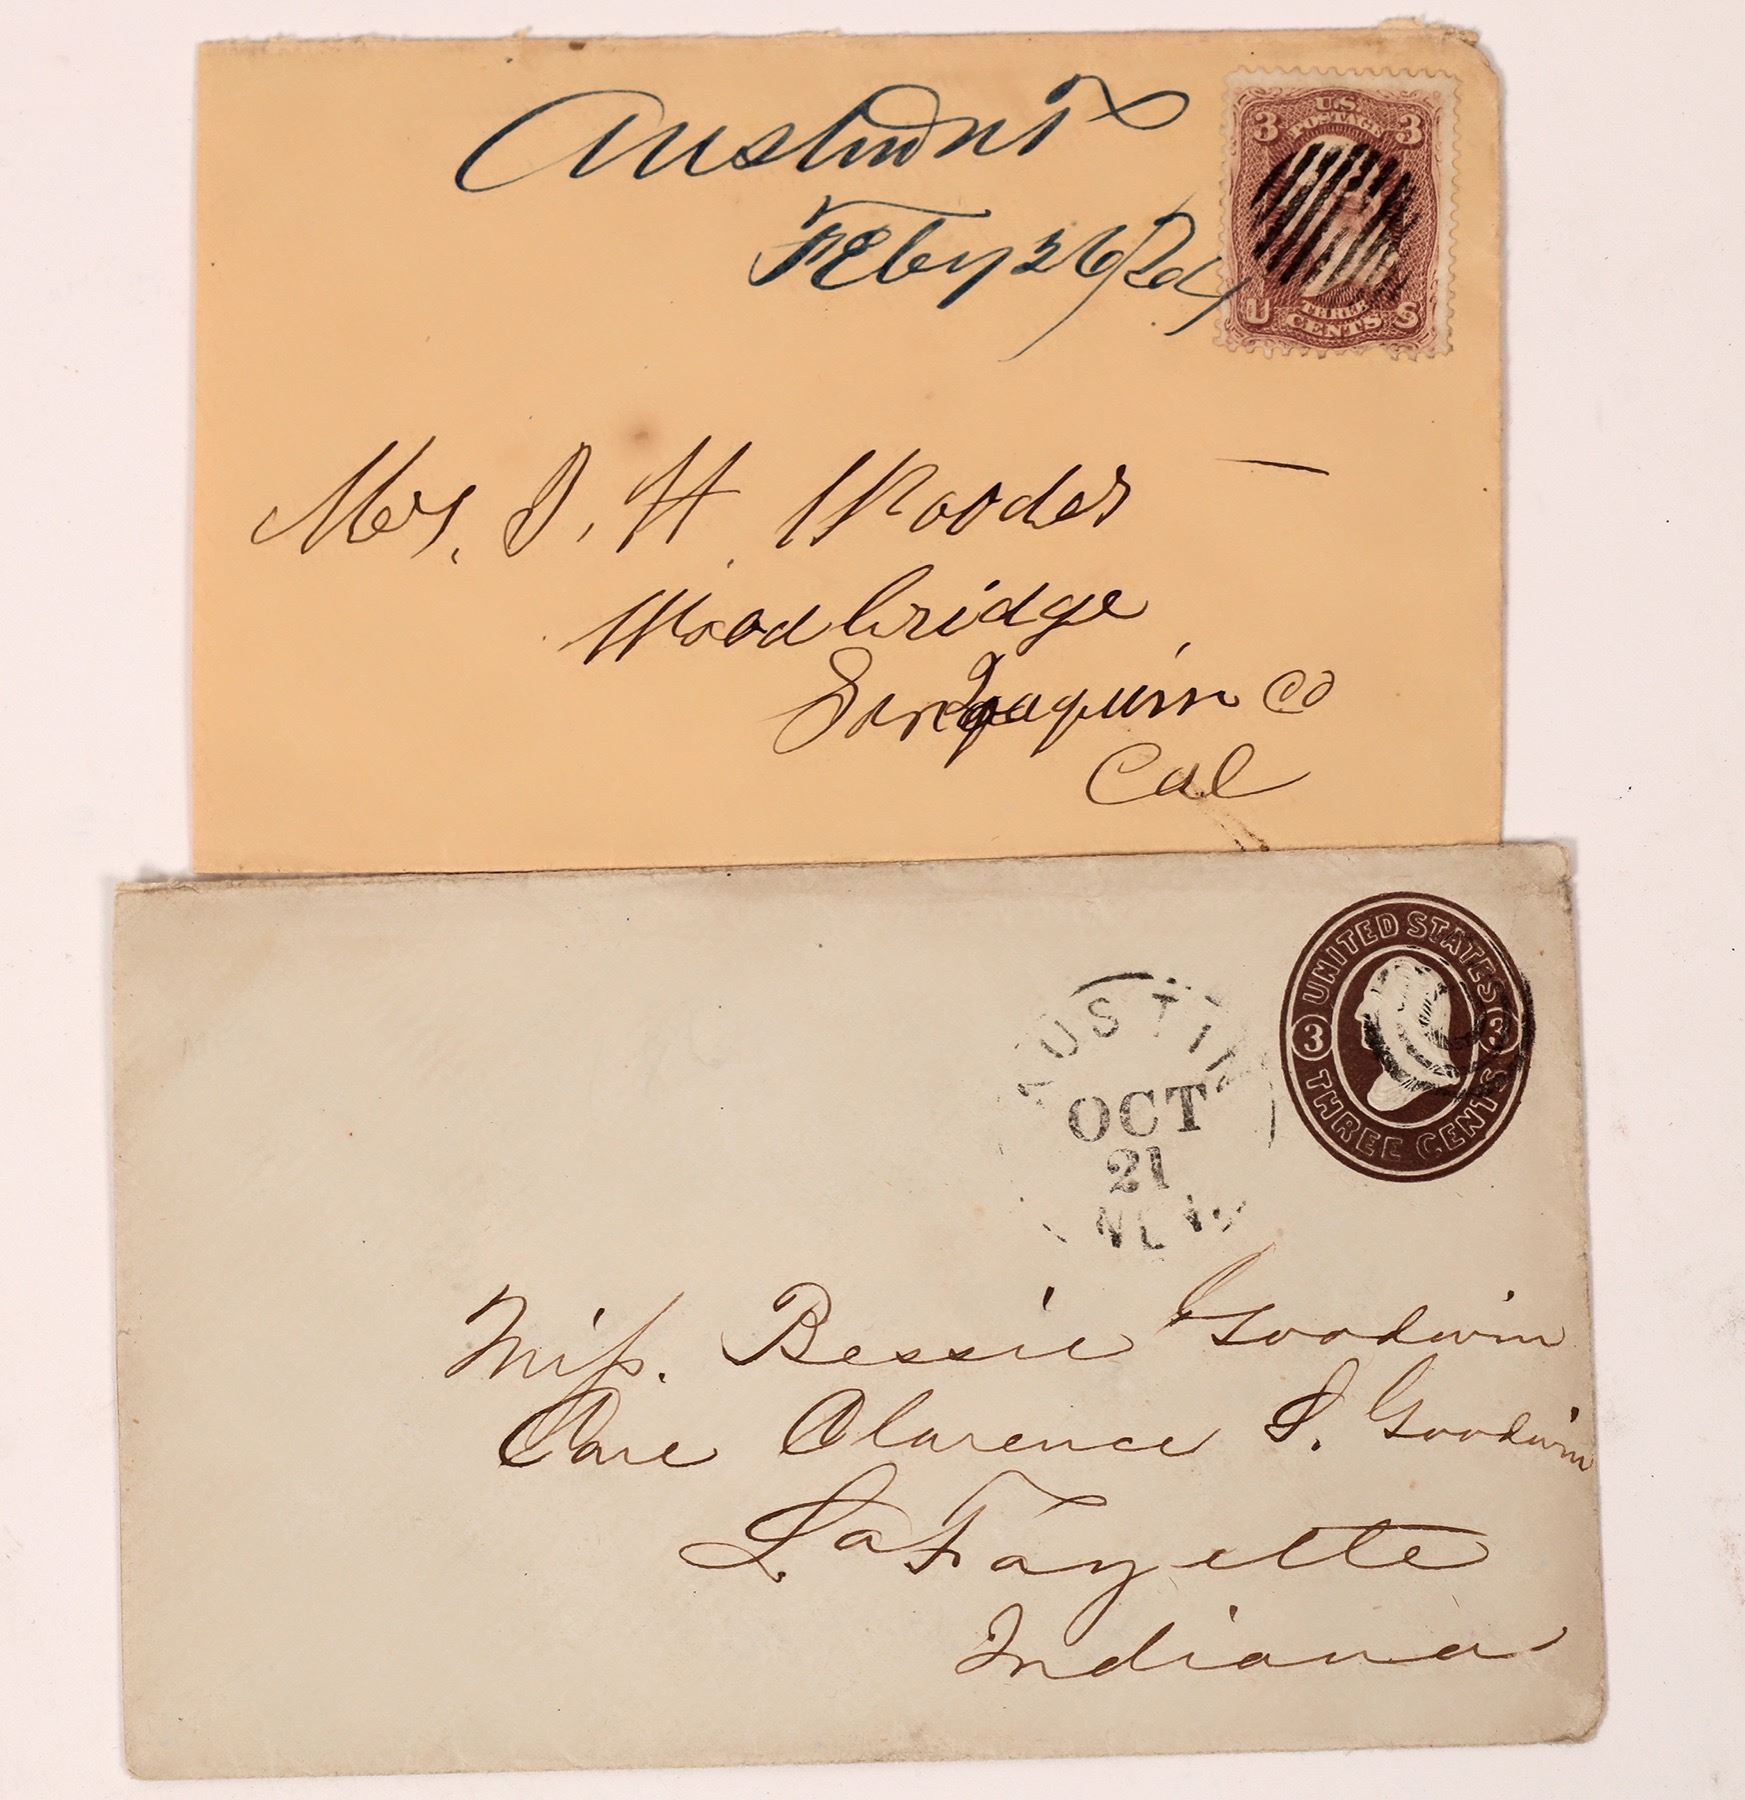 Austin NT
Feby 26/64
3 U.S. POSTAGE 3
U THREE CENTS S
Mrs. D. H. Woods
Woodbridge
San Joaquin Co
Cal
UNITED STATES
3 3
THREE CENTS
AUSTIN
OCT
21
NEV.
Miss. Bessie Goodwin
Care Clarence S. Goodwin
LaFayette
Indiana